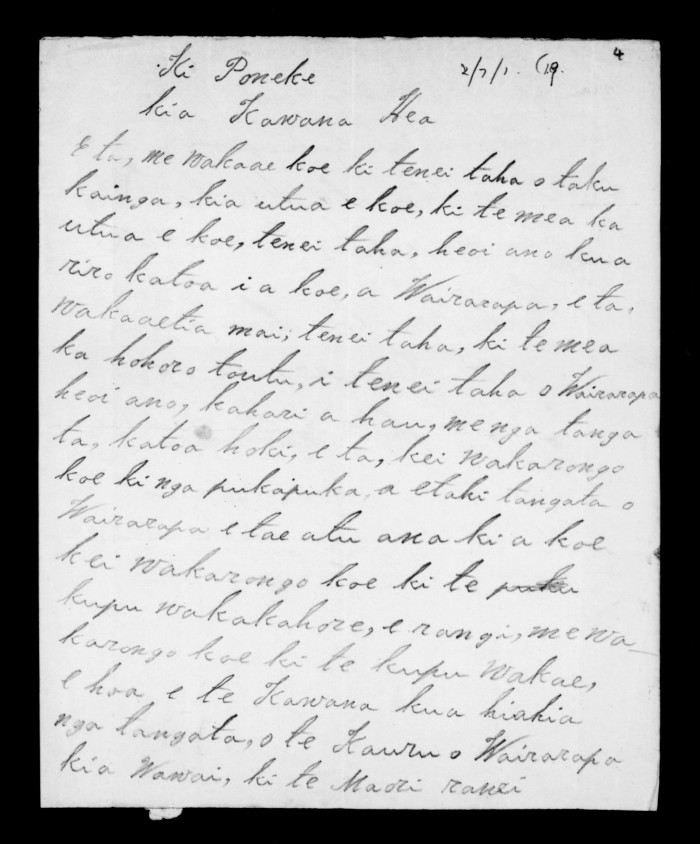 4
Ki Poneke 2/7/1. (19.
kia Kawana Hea
E ta, me wakaae koe ki tenei taha o taku
kainga, kia utua e koe, ki te mea ka
utua e koe, tenei taha, heoi ano kua
riro katoa i a koe, a Wairarapa, e ta,
wakaaetia mai; tenei taha, ki te mea
ka hohoro toutu, i tenei taha o Wairarapa
heoi ano, kahari a hau, me nga tanga
ta, katoa hoki, e ta, kei wakarongo
koe ki nga pukapuka, a etahi tangata o
Wairarapa e tae atu ana ki a koe
kei wakarongo koe ki te puku
kupu wakakahore, e rangi, me wa_
karongo koe ki te kupu wakae,
e hoa e te Kawana kua hiahia
nga tangata, o te Kauru o Wairarapa
kia Wawai, ki te Maori ranei